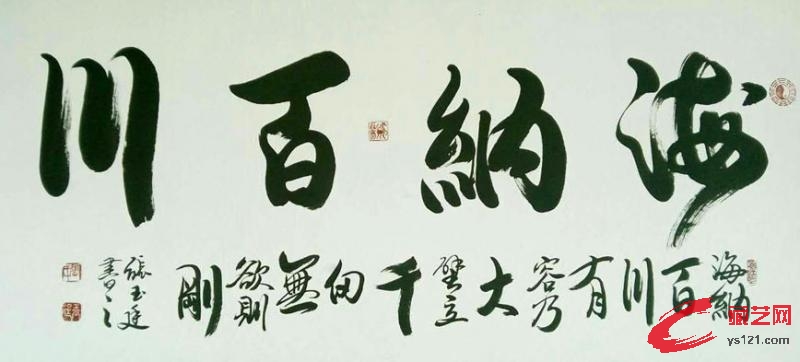 海納百川
海納百川有容乃大壁立千仞無欲則剛
張玉廷
書之
藏艺网
ys121.com